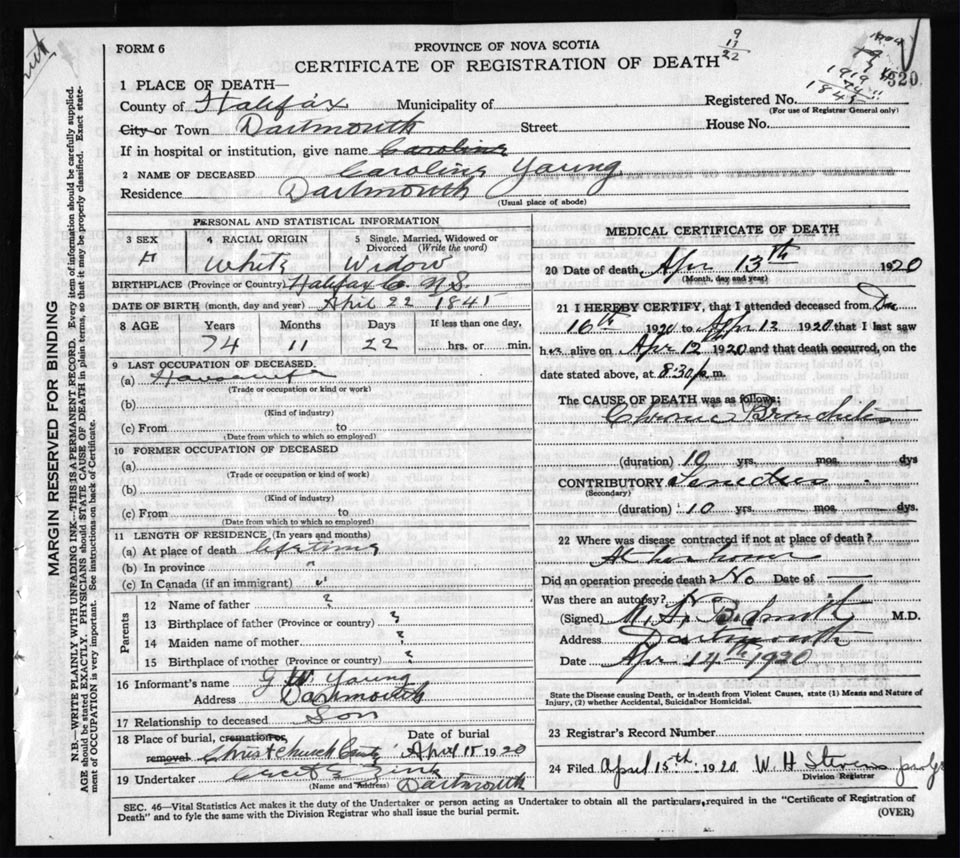 FORM 6
PROVINCE OF NOVA SCOTIA
9
13
22
CERTIFICATE OF REGISTRATION OF DEATH
1919
1845
320
1 PLACE OF DEATH—
County of Halifax Municipality of Registered No.
(For use of Registrar General only)
City or Town Dartmouth Street House No.
If in hospital or institution, give name Caroline
2 NAME OF DECEASED Caroline Young
Residence Dartmouth
(Usual place of abode)
PERSONAL AND STATISTICAL INFORMATION
3 SEX 4 RACIAL ORIGIN 5 Single, Married, Widowed or Divorced (Write the word)
F White Widow
BIRTHPLACE (Province or Country) Halifax Co. N.S.
DATE OF BIRTH (month, day and year) April 22 1845
8 AGE Years Months Days If less than one day,
74 11 22 hrs. or min.
9 LAST OCCUPATION OF DECEASED.
(a) Housewife
(Trade or occupation or kind or work)
(b)
(Kind of industry)
(c) From to
(Date from which to which so employed)
10 FORMER OCCUPATION OF DECEASED
(a)
(Trade or occupation or kind of work)
(b)
(Kind of industry)
(c) From to
(Date from which to which so employed)
11 LENGTH OF RESIDENCE (In years and months)
(a) At place of death lifetime
(b) In province "
(c) In Canada (if an immigrant) "
Parents
12 Name of father ?
13 Birthplace of father (Province or country) ?
14 Maiden name of mother ?
15 Birthplace of mother (Province or country) ?
16 Informant's name G W Young
Address Dartmouth
17 Relationship to deceased Son
18 Place of burial, cremation or, Date of burial
removal Christ Church Cemty April 15 1920
19 Undertaker Zink
(Name and Address) Dartmouth
MEDICAL CERTIFICATE OF DEATH
20 Date of death, Apr 13th 1920
(Month, day and year)
21 I HEREBY CERTIFY, that I attended deceased from Dec
16th 1920 to Apr 13 1920 that I last saw
her alive on Apr 12th 1920 and that death occurred, on the
date stated above, at 8.30 p.m.
The CAUSE OF DEATH was as follows;
Chronic Bronchitis
(duration) 10 yrs. mos. dys
CONTRIBUTORY
(Secondary)
(duration) 10 yrs. mos. dys.
22 Where was disease contracted if not at place of death?
At her home
Did an operation precede death? No Date of —
Was there an autopsy? No
(Signed) M. A. B. Smith M.D.
Address Dartmouth
Date Apr 14th 1920
State the Disease causing Death, or in death from Violent Causes, state (1) Means and Nature of
Injury, (2) whether Accidental, Suicidal or Homicidal.
23 Registrar's Record Number
24 Filed April 15th. 1920 W. H Stevens
Division Registrar
SEC. 46—Vital Statistics Act makes it the duty of the Undertaker or person acting as Undertaker to obtain all the particulars, required in the "Certificate of Registration of
Death" and to fyle the same with the Division Registrar who shall issue the burial permit.
(OVER)
MARGIN RESERVED FOR BINDING
N.B.—WRITE PLAINLY WITH UNFADING INK—THIS IS A PERMANENT RECORD. Every item of information should be carefully supplied.
AGE should be stated EXACTLY. PHYSICIANS should STATE CAUSE OF DEATH in plain terms, so that it may be properly classified. Exact state-
ment of OCCUPATION is very important. See instructions on back of Certificate.